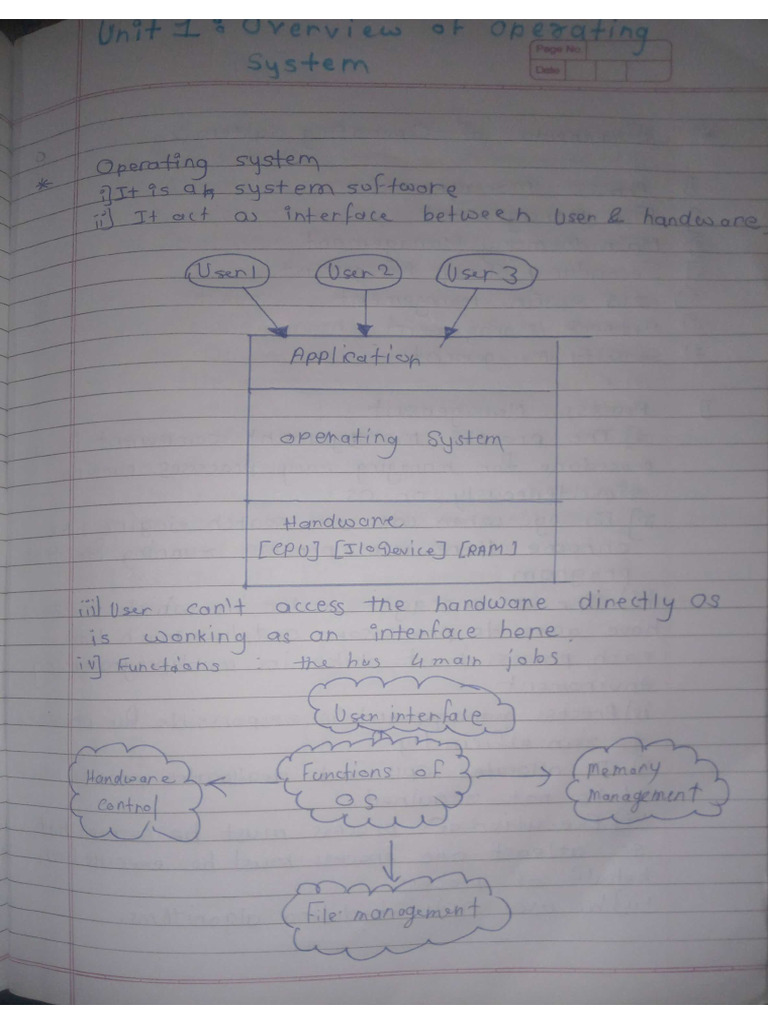 Unit 1 : Overview of Operating
System
Page No
Date
Operating system
i] It is an system software
ii] It act as interface between User & handware
User 1
User 2
User 3
Application
Operating System
Handware
[CPU] [I/O Device] [RAM]
iii] User can't access the handware directly OS
is working as an interface here.
iv] Functions : the has 4 main jobs
User interface
Handware
control
Functions of
OS
Memory
management
File management